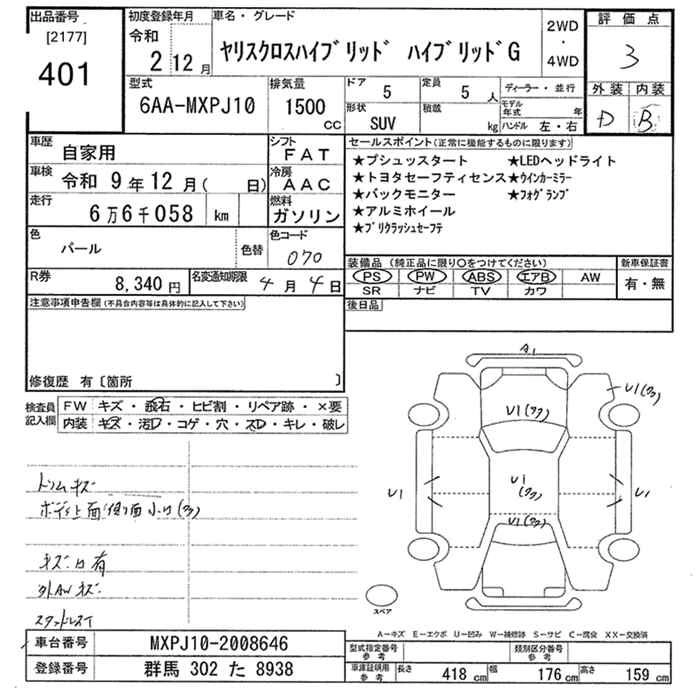 出品番号
[2177]
401
初度登録年月
令和
2 12 月
車名・グレード
ヤリスクロスハイブリッド ハイブリッドG
2WD
・
4WD
評価点
3
外装 内装
D B
型式
6AA-MXPJ10
排気量
1500
CC
ドア
5
定員
5 人
形状
SUV
積載
kg
ディーラー・並行
モデル年式 年
ハンドル 左・右
車歴
自家用
車検
令和 9年12月( 日)
走行
6万6千058 km
シフト
FAT
冷房
AAC
燃料
ガソリン
色
パール
色替
色コード
070
R券
8,340 円
名変通知期限
4月4日
セールスポイント(正常に機能するものに限ります)
★プシュッスタート ★LEDヘッドライト
★トヨタセーフティセンス★ウインカーミラー
★バックモニター ★フォグランプ
★アルミホイール
★プリクラッシュセーフテ
装備品 (純正品に限り○をつけてください)
PS PW ABS エアB AW
SR ナビ TV カワ
新車保証書
有・無
後日品
注意事項申告欄(不具合内容等は具体的に記入して下さい)
修復歴 有〔箇所 〕
検査員
記入欄
FW キズ・飛石・ヒビ割・リペア跡・×要
内装 キズ・汚レ・コゲ・穴・スレ・キレ・破レ
トリムキズ
ボディ上面/側面小凹(多)
キズ凹有
外AWキズ
スタッドレスT
A1
U1(多)
U1(多)
U1
U1
(多)
U1
U1(多)
スペア
A－キズ E－エクボ U－凹み W－補修跡 S－サビ C－腐食 XX－交換済
車台番号
MXPJ10-2008646
登録番号
群馬 302 た 8938
型式指定番号
参考
類別区分番号
参考
車庫証明用
参考
長さ 418 cm 幅 176 cm 高さ 159 cm